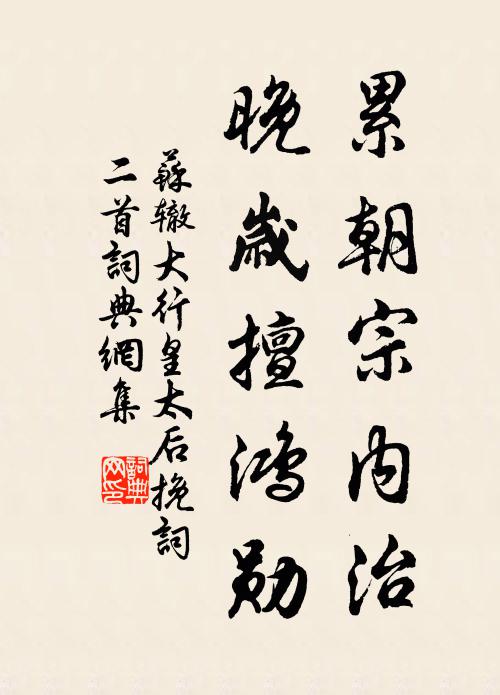 累朝宗内治
晚歲擅鴻勋
蘇辙大行皇太后挽詞
二首詞典網集
詞典网印